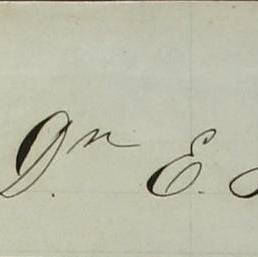 Dn E.